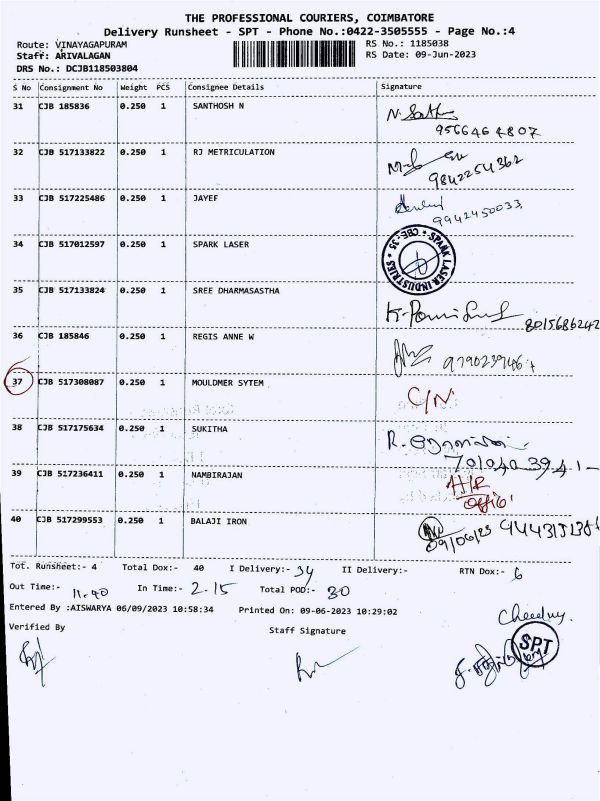 THE PROFESSIONAL COURIERS, COIMBATORE
Delivery Runsheet - SPT - Phone No.:0422-3505555 - Page No.:4
Route: VINAYAGAPURAM RS No.: 1185038
Staff: ARIVALAGAN RS Date: 09-Jun-2023
DRS No.: DCJB118503804
S No Consignment No Weight PCS Consignee Details Signature
31 CJB 185836 0.250 1 SANTHOSH N
9566464807
32 CJB 517133822 0.250 1 RJ METRICULATION
9842254362
33 CJB 517225486 0.250 1 JAYEF
9942450033
34 CJB 517012597 0.250 1 SPARK LASER
SPARK LASER INDUSTRIES * CBE-35 *
35 CJB 517133824 0.250 1 SREE DHARMASASTHA
8015686242
36 CJB 185846 0.250 1 REGIS ANNE W
37 CJB 517308087 0.250 1 MOULDMER SYTEM C/N
38 CJB 517175634 0.250 1 SUKITHA
7010403941
39 CJB 517236411 0.250 1 NAMBIRAJAN
40 CJB 517299553 0.250 1 BALAJI IRON
09/06/23
Tot. Runsheet:- 4 Total Dox:- 40 I Delivery:- 34 II Delivery:- RTN Dox:- 6
Out Time:- 11.40 In Time:- 2.15 Total POD:- 30
Entered By :AISWARYA 06/09/2023 10:58:34 Printed On: 09-06-2023 10:29:02
Verified By Staff Signature
SPT